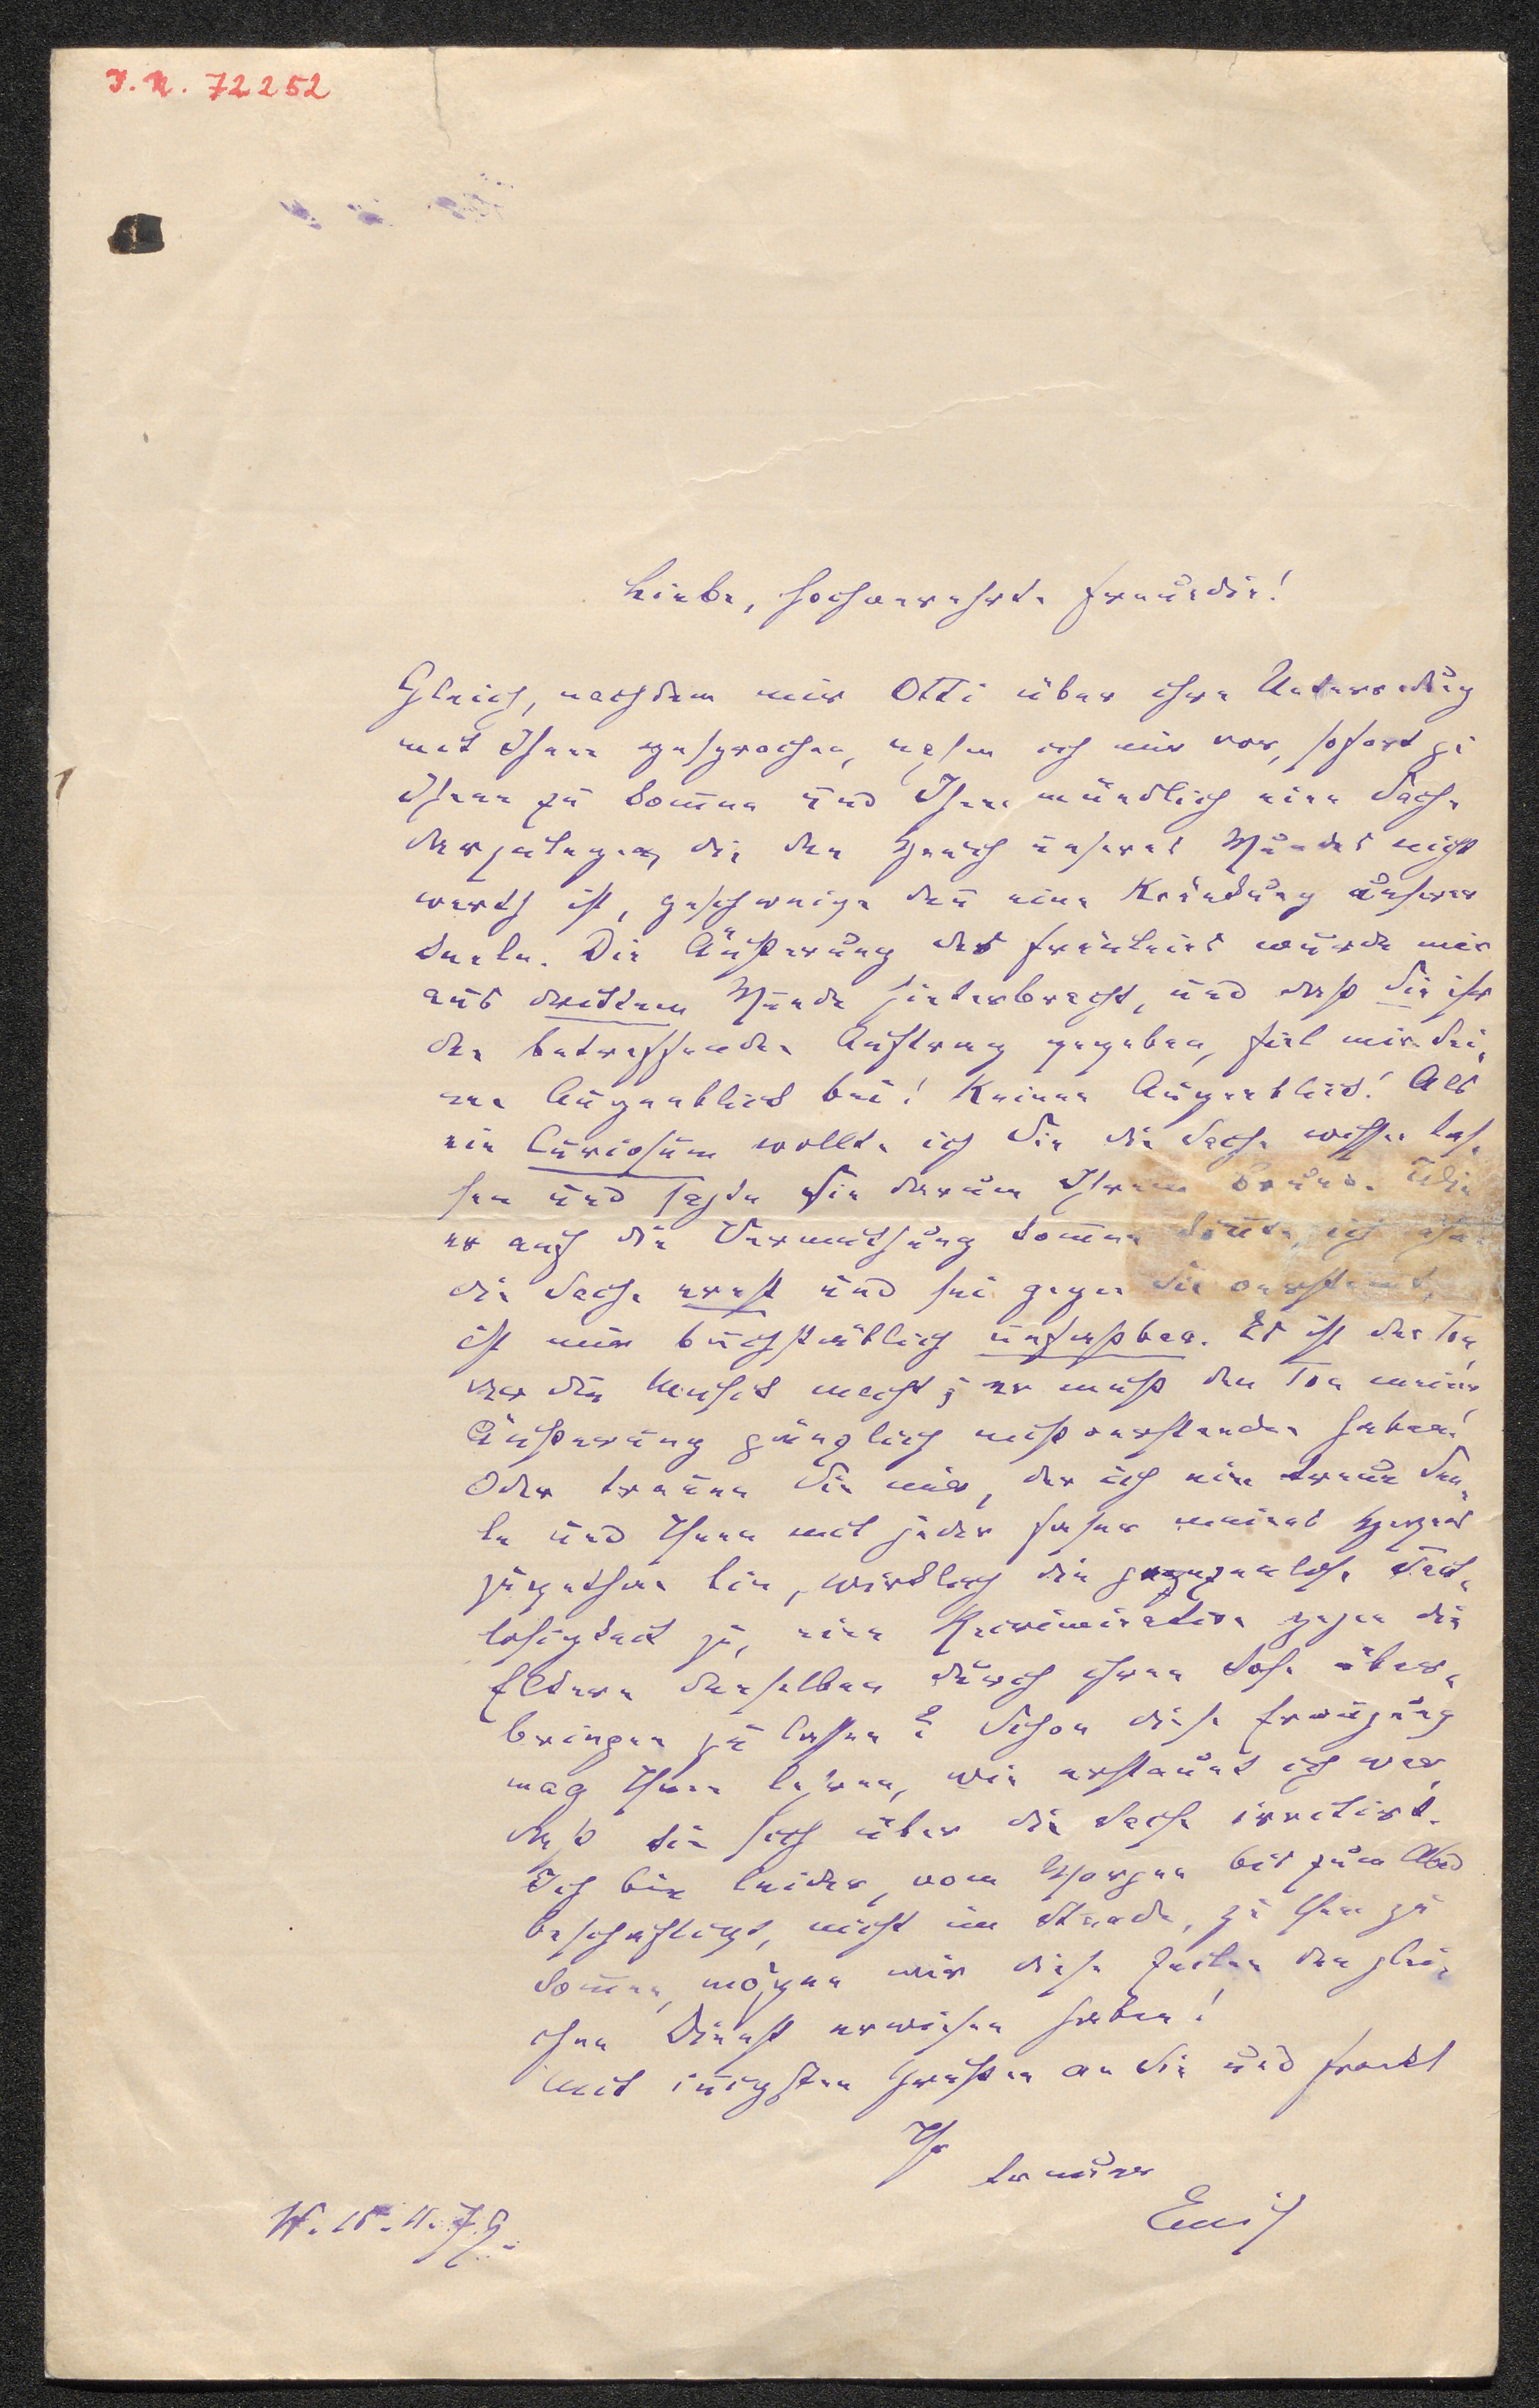 I. N. 72252
Liebe, hochverehrte Freundin!
Gleich, nachdem mir Otti über ihre Unterredung
mit Ihnen gesprochen, nahm ich mir vor, sofort zu
Ihnen zu kommen und Ihnen mündlich eine Sache
darzulegen, die den Hauch unseres Mundes nicht
werth ist, geschweige denn eine Kränkung unserer
Seele. Die Äußerung des Fräuleins wurde mir
aus drittem Munde hinterbracht, und daß Sie ihr
den betreffenden Auftrag gegeben, fiel mir kei-
nen Augenblick bei! Keinen Augenblick! Als
ein Curiosum wollte ich Sie die Sache wissen las-
sen und sagte sie darum Ihrem Bruno. Wie
er auf die Vermuthung kommen konnte, ich nehme
die Sache ernst und sei gegen Sie verstimmt,
ist mir buchstäblich unfaßbar. Es ist der Ton,
der die Musik macht; er muß den Ton meiner
Äußerung gänzlich mißverstanden haben!
Oder trauen Sie mir, der ich eine treue See-
le und Ihnen mit jeder Faser meines Herzens
zugethan bin, wirklich die grenzenlose Takt-
losigkeit zu, eine Recrimination gegen die
Eltern denselben durch ihren Sohn über-
bringen zu lassen? Schon diese Erwägung
mag Ihnen lehren, wie erstaunt ich war,
daß Sie sich über die Sache irritirt.
Ich bin leider, vom Morgen bis zum Abend
beschäftigt, nicht im Stande, zu Ihnen zu
kommen, mögen mir diese Zeilen den glei-
chen Dienst erwiesen haben!
Mit innigsten Grüßen an Sie und Frankl
Ihr
treuer
Emil
W. 15. 11. 79.